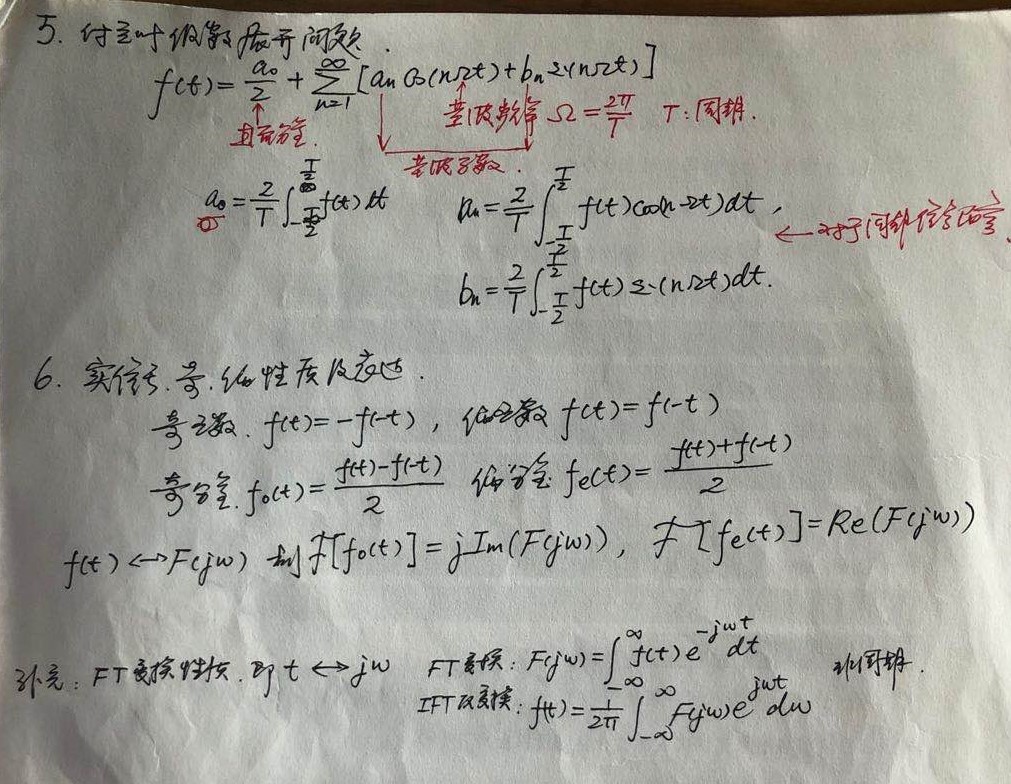 5. 付立叶级数展开问题.
f(t) = a₀/2 + ∑_{n=1}^{∞} [aₙ cos(nΩt) + bₙ sin(nΩt)]
直流分量. 基波频率 Ω = 2π/T T:周期.
基波系数.
a₀ = 2/T ∫_{-T/2}^{T/2} f(t) dt aₙ = 2/T ∫_{-T/2}^{T/2} f(t) cos(nΩt) dt, ← 对于周期信号而言.
bₙ = 2/T ∫_{-T/2}^{T/2} f(t) sin(nΩt) dt.
6. 实信号.奇.偶性质及表达.
奇函数. f(t) = -f(-t), 偶函数 f(t) = f(-t)
奇分量. f₀(t) = (f(t)-f(-t))/2 偶分量 fe(t) = (f(t)+f(-t))/2
f(t) ↔ F(jω) 则 ℱ[f₀(t)] = jIm(F(jω)), ℱ[fe(t)] = Re(F(jω))
补充: FT变换性质. 即 t ↔ jω FT变换: F(jω) = ∫_{-∞}^{∞} f(t) e^{-jωt} dt 非周期.
IFT反变换: f(t) = 1/2π ∫_{-∞}^{∞} F(jω) e^{jωt} dω